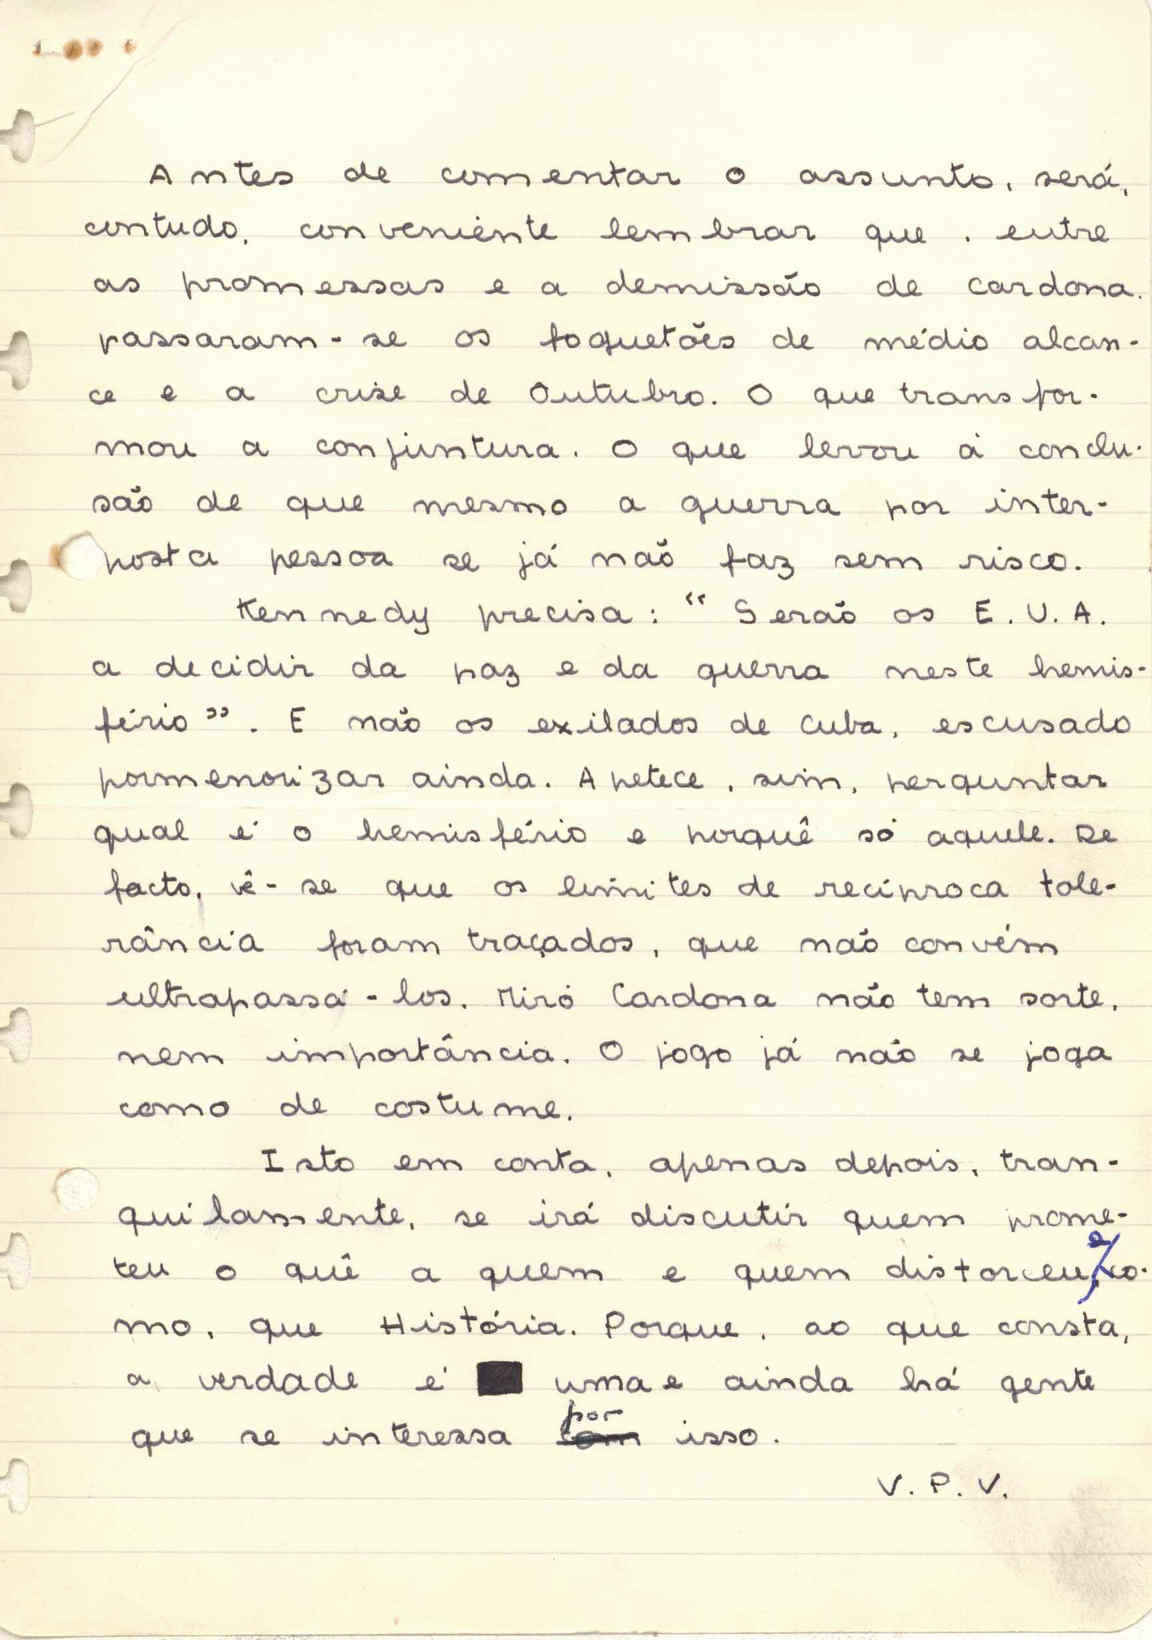 Antes de comentar o assunto, será,
contudo, conveniente lembrar que, entre
as promessas e a demissão de Cardona,
passaram-se os foguetões de médio alcan-
ce e a crise de Outubro. O que transfor-
mou a conjuntura. O que levou à conclu-
são de que mesmo a guerra por inter-
posta pessoa se já não faz sem risco.
Kennedy precisa: "Serão os E.U.A.
a decidir da paz e da guerra neste hemis-
fério". E não os exilados de Cuba, escusado
pormenorizar ainda. Apetece, sim, perguntar
qual é o hemisfério e porquê só aquele. De
facto, vê-se que os limites de recíproca tole-
rância foram traçados, que não convém
ultrapassá-los. Miró Cardona não tem sorte,
nem importância. O jogo já não se joga
como de costume.
Isto em conta, apenas depois, tran-
quilamente, se irá discutir quem prome-
teu o quê a quem e quem distorceu, e co-
mo, que História. Porque, ao que consta,
a verdade é uma e ainda há gente
que se interessa com por isso.
V. P. V.